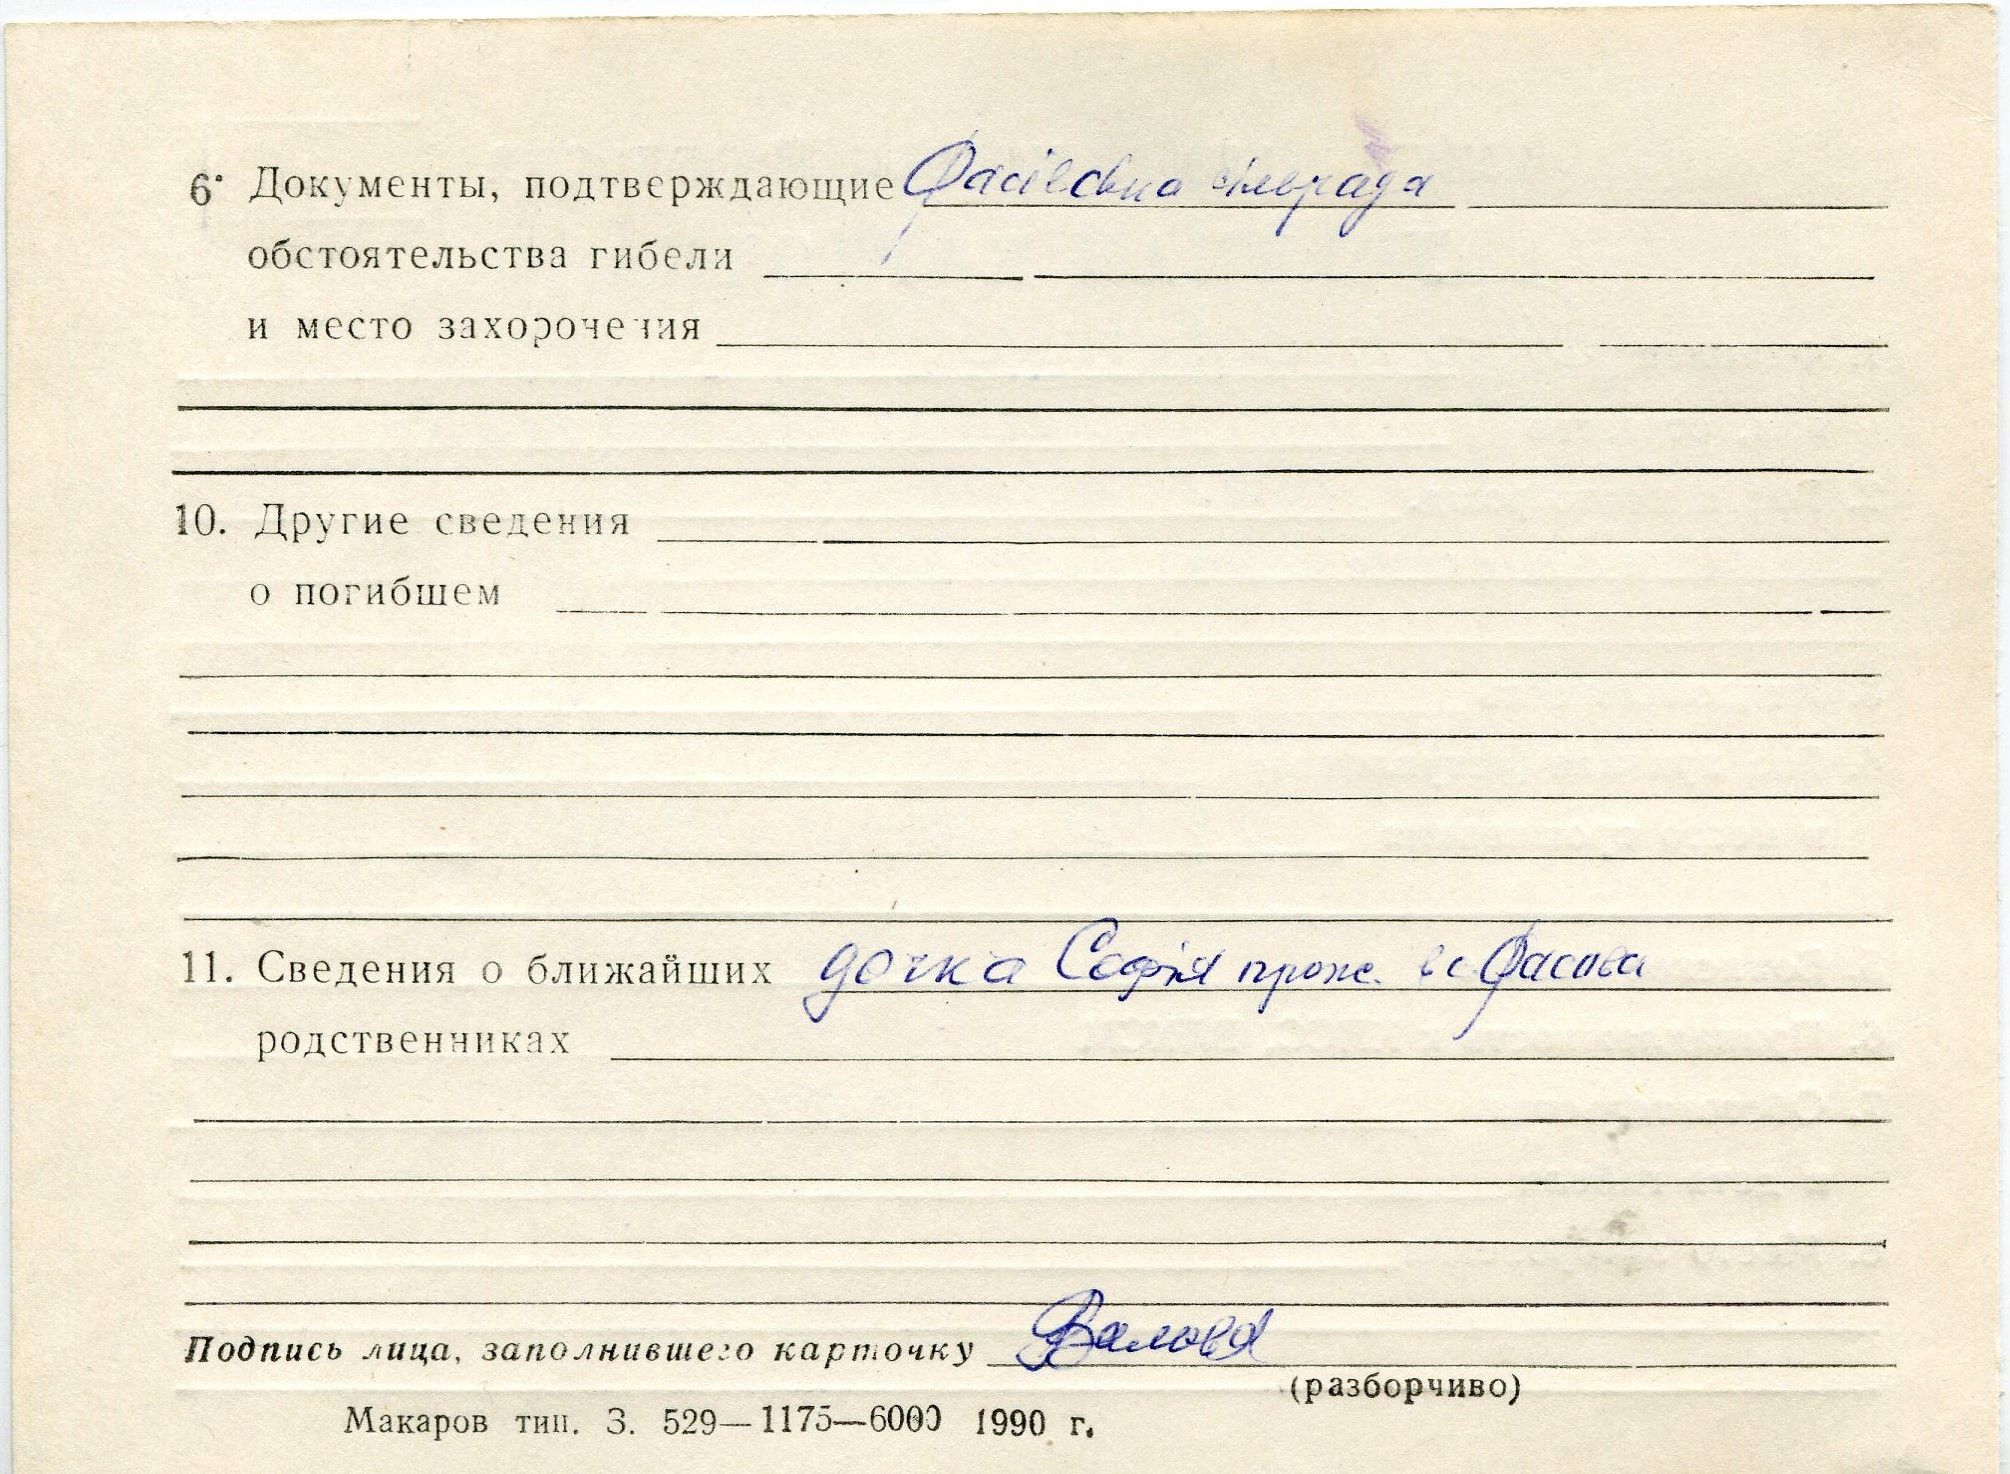 6. Документы, подтверждающие Фасівська сільрада
обстоятельства гибели
и место захоронения
10. Другие сведения
о погибшем
11. Сведения о ближайших дочка Софія прож. в с. Фасова
родственниках
Подпись лица, заполнившего карточку
(разборчиво)
Макаров тип. З. 529—1175—6000 1990 г.